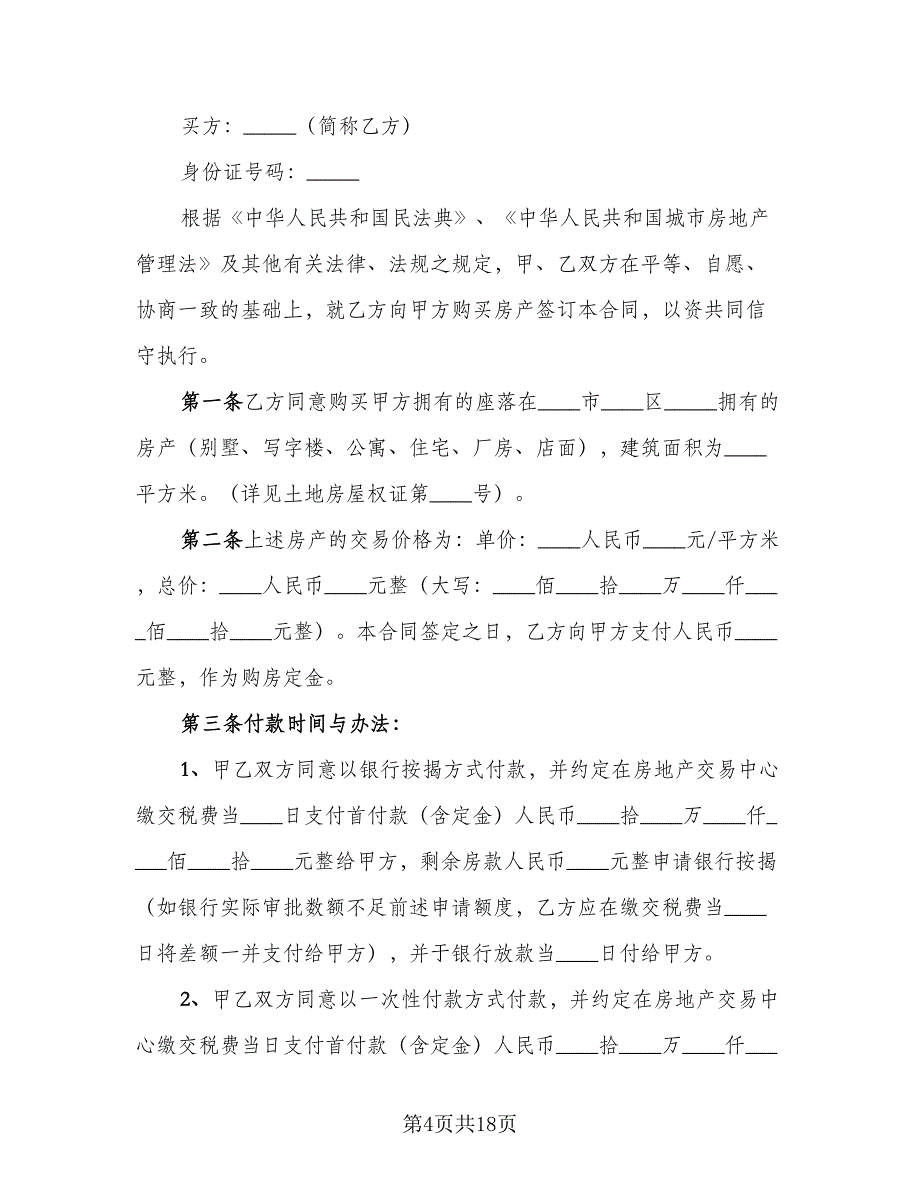 买方：_____（简称乙方）
身份证号码：_____
根据《中华人民共和国民法典》、《中华人民共和国城市房地产
管理法》及其他有关法律、法规之规定，甲、乙双方在平等、自愿、
协商一致的基础上，就乙方向甲方购买房产签订本合同，以资共同信
守执行。
第一条乙方同意购买甲方拥有的座落在____市____区_____拥有的
房产（别墅、写字楼、公寓、住宅、厂房、店面），建筑面积为____
平方米。（详见土地房屋权证第____号）。
第二条上述房产的交易价格为：单价：____人民币____元/平方米
，总价：____人民币____元整（大写：____佰____拾____万____仟___
_佰____拾____元整）。本合同签定之日，乙方向甲方支付人民币____
元整，作为购房定金。
第三条付款时间与办法：
1、甲乙双方同意以银行按揭方式付款，并约定在房地产交易中心
缴交税费当____日支付首付款（含定金）人民币____拾____万____仟_
___佰____拾____元整给甲方，剩余房款人民币____元整申请银行按揭
（如银行实际审批数额不足前述申请额度，乙方应在缴交税费当____
日将差额一并支付给甲方），并于银行放款当____日付给甲方。
2、甲乙双方同意以一次性付款方式付款，并约定在房地产交易中
心缴交税费当日支付首付款（含定金）人民币____拾____万____仟___
第4页共18页